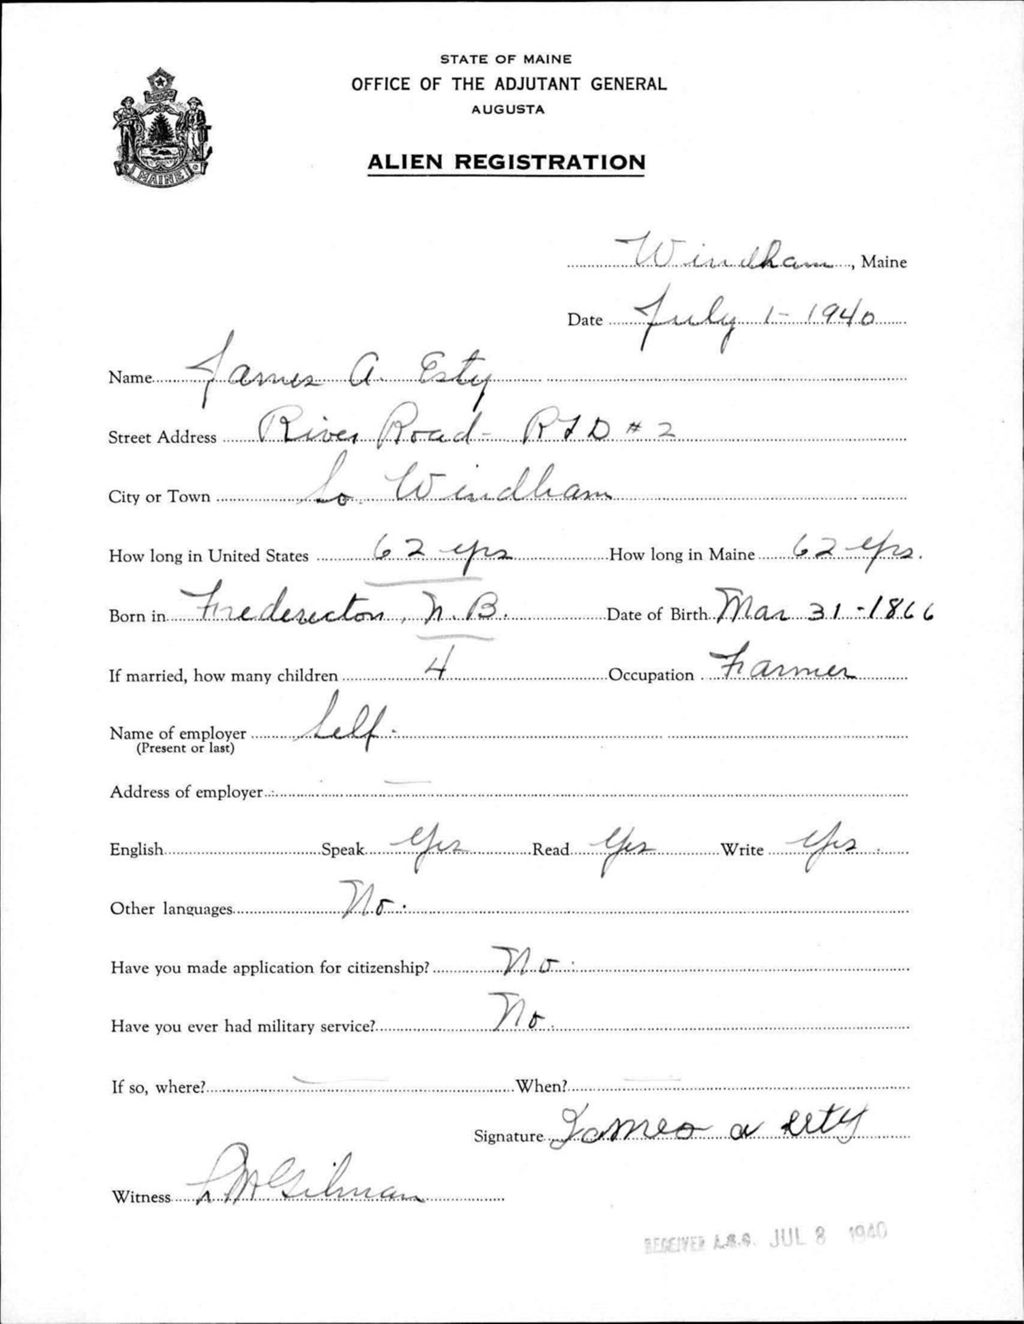 STATE OF MAINE
OFFICE OF THE ADJUTANT GENERAL
AUGUSTA
ALIEN REGISTRATION
MAINE
Windham, Maine
Date July 1 - 1940
Name James A. Esty
Street Address River Road - RFD # 2
City or Town So. Windham
How long in United States 62 yrs How long in Maine 62 yrs.
Born in Frederecton, N.B. Date of Birth Mar 31 - 1866
If married, how many children 4 Occupation Farmer
Name of employer Self.
(Present or last)
Address of employer —
English Speak Yes Read Yes Write Yes
Other languages No.
Have you made application for citizenship? No.
Have you ever had military service? No.
If so, where? — When? —
Signature James a esty
Witness L M Gilman
RECEIVED A.G.O. JUL 8 1940